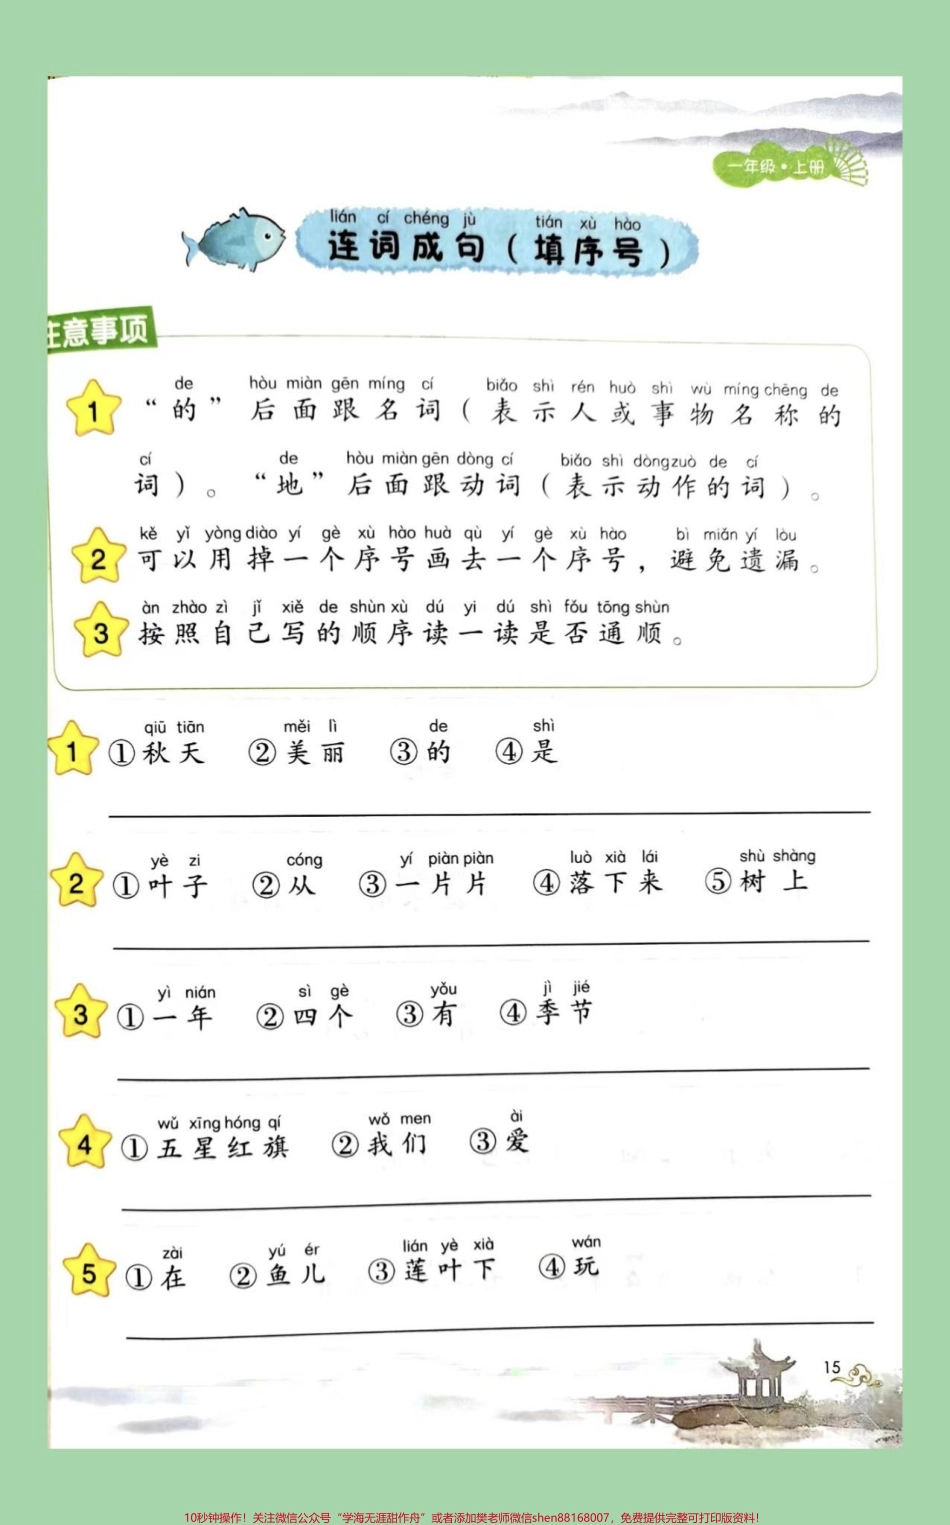 一年级·上册
lián cí chéng jù tián xù hào
连词成句（填序号）
注意事项
de hòu miàn gēn míng cí biǎo shì rén huò shì wù míng chēng de
1 “的”后面跟名词（表示人或事物名称的
cí de hòu miàn gēn dòng cí biǎo shì dòng zuò de cí
词）。“地”后面跟动词（表示动作的词）。
kě yǐ yòng diào yí gè xù hào huà qù yí gè xù hào bì miǎn yí lòu
2 可以用掉一个序号画去一个序号，避免遗漏。
àn zhào zì jǐ xiě de shùn xù dú yi dú shì fǒu tōng shùn
3 按照自己写的顺序读一读是否通顺。
qiū tiān měi lì de shì
1 ①秋天 ②美丽 ③的 ④是
yè zi cóng yí piàn piàn luò xià lái shù shàng
2 ①叶子 ②从 ③一片片 ④落下来 ⑤树上
yì nián sì gè yǒu jì jié
3 ①一年 ②四个 ③有 ④季节
wǔ xīng hóng qí wǒ men ài
4 ①五星红旗 ②我们 ③爱
zài yú ér lián yè xià wán
5 ①在 ②鱼儿 ③莲叶下 ④玩
15
10秒钟操作！关注微信公众号“学海无涯甜作舟”或者添加樊老师微信shen88168007，免费提供完整可打印版资料！